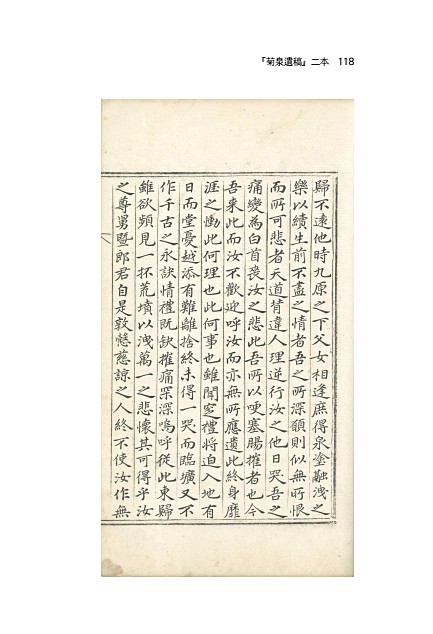 『菊泉遺稿』二本 118
歸不遠他時九原之下父女相逢庶得泉塗融洩之
樂以續生前不盡之情者吾之所深願則似無所恨
而所可悲者天道背違人理逆行汝之他日哭吾之
痛變為白首喪汝之悲此吾所以哽塞腸摧者也今
吾來此而汝不歡迎呼汝而亦無所應遺此終身靡
涯之慟此何理也此何事也雖聞窆禮將迫入地有
日而堂憂越添有難離捨終未得一哭而臨壙又不
作千古之永訣情禮旣缺摧痛冞深嗚呼從此東歸
雖欲頻見一抔荒墳以洩萬一之悲懷其可得乎汝
之尊舅曁郎君自是敦慈諒之人終不使汝作無